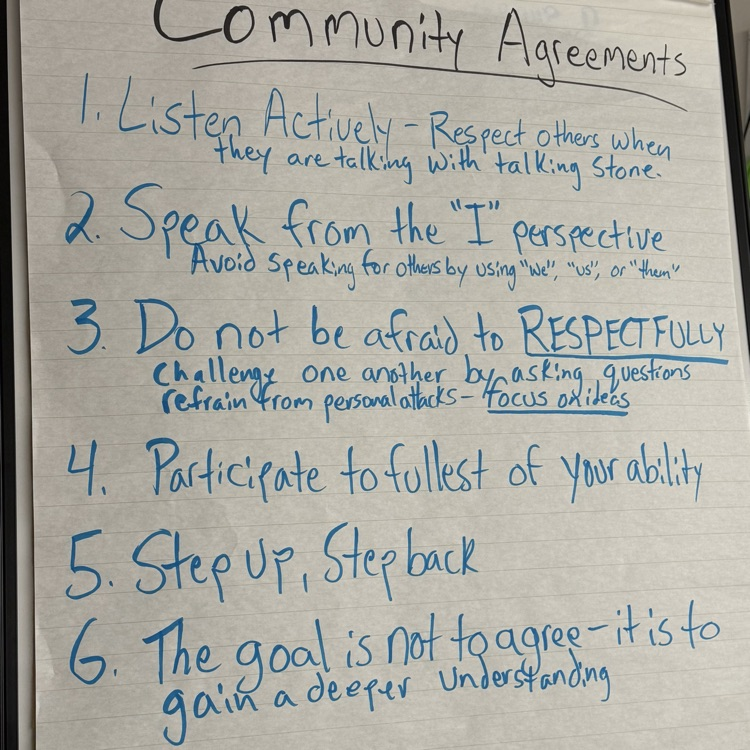 Community Agreements
1. Listen Actively - Respect others when
they are talking with talking stone.
2. Speak from the "I" perspective
Avoid speaking for others by using "we", "us", or "them"
3. Do not be afraid to RESPECTFULLY
challenge one another by asking questions
refrain from personal attacks - focus on ideas
4. Participate to fullest of your ability
5. Step up, Step back
6. The goal is not to agree - it is to
gain a deeper understanding